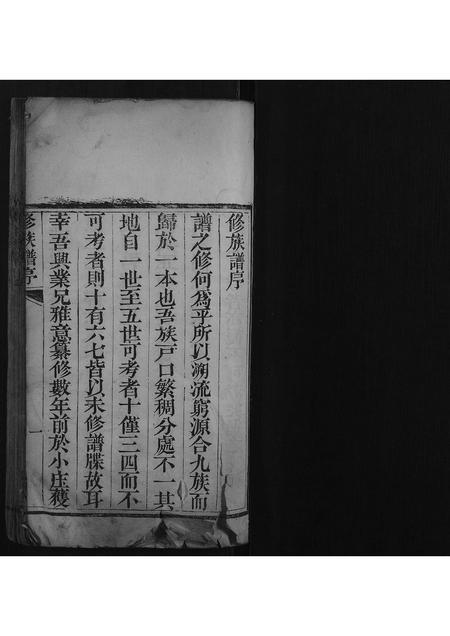 修族譜序
譜之修何爲乎所以溯流窮源合九族而
歸於一本也吾族戸口繁稠分處不一其
地自一世至五世可考者十僅三四而不
可考者則十有六七皆以未修譜牒故耳
幸吾興業兄雅意纂修數年前於小庄獲
修族譜序